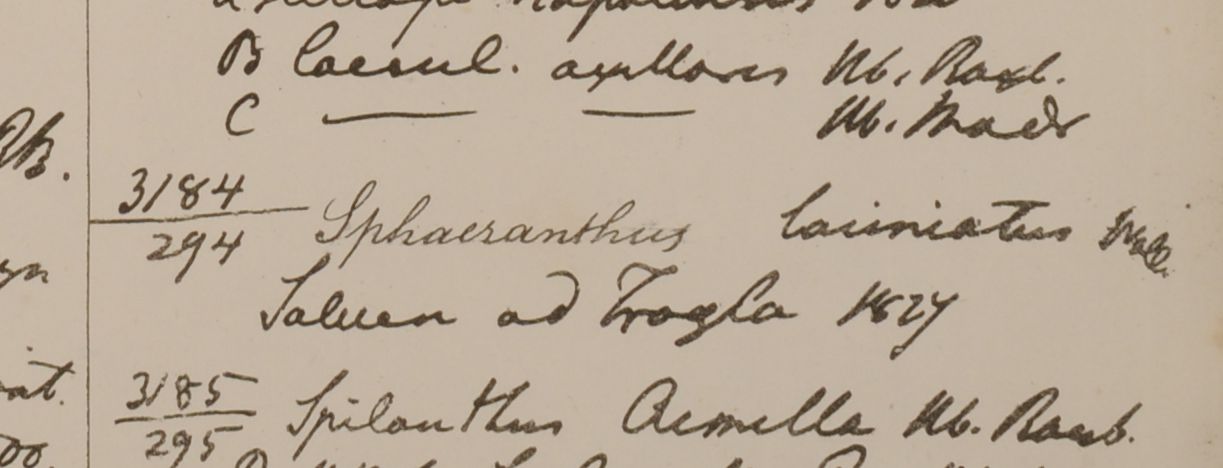 B Caesul. axillaris Hb. Roxb.
C — — Hb. Madr
3184
294 Sphaeranthus laciniatus Wall.
Saluen ad Trogla 1827
3185
295 Spilanthus Acmella Hb. Roxb.